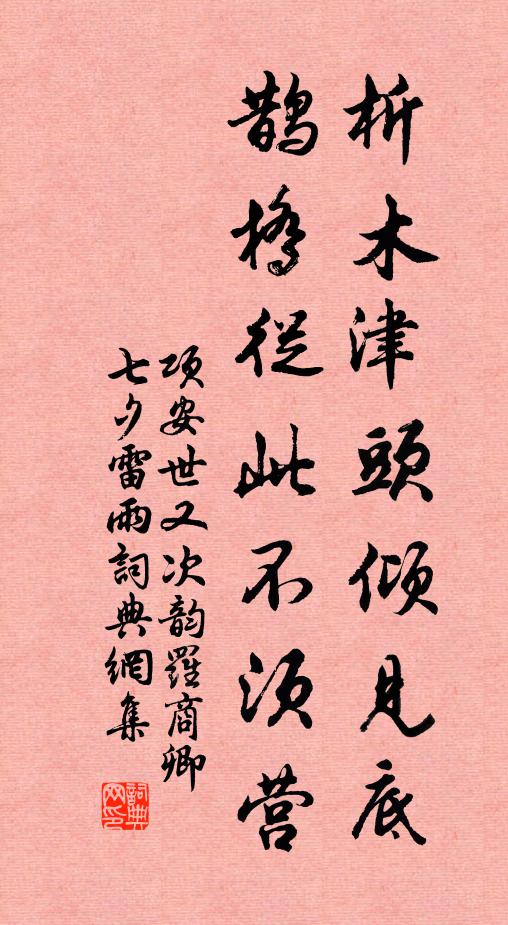 析木津頭傾見底
鵲橋從此不須营
項安世又次韵羅商卿
七夕雷雨詞典網集
詞典网印